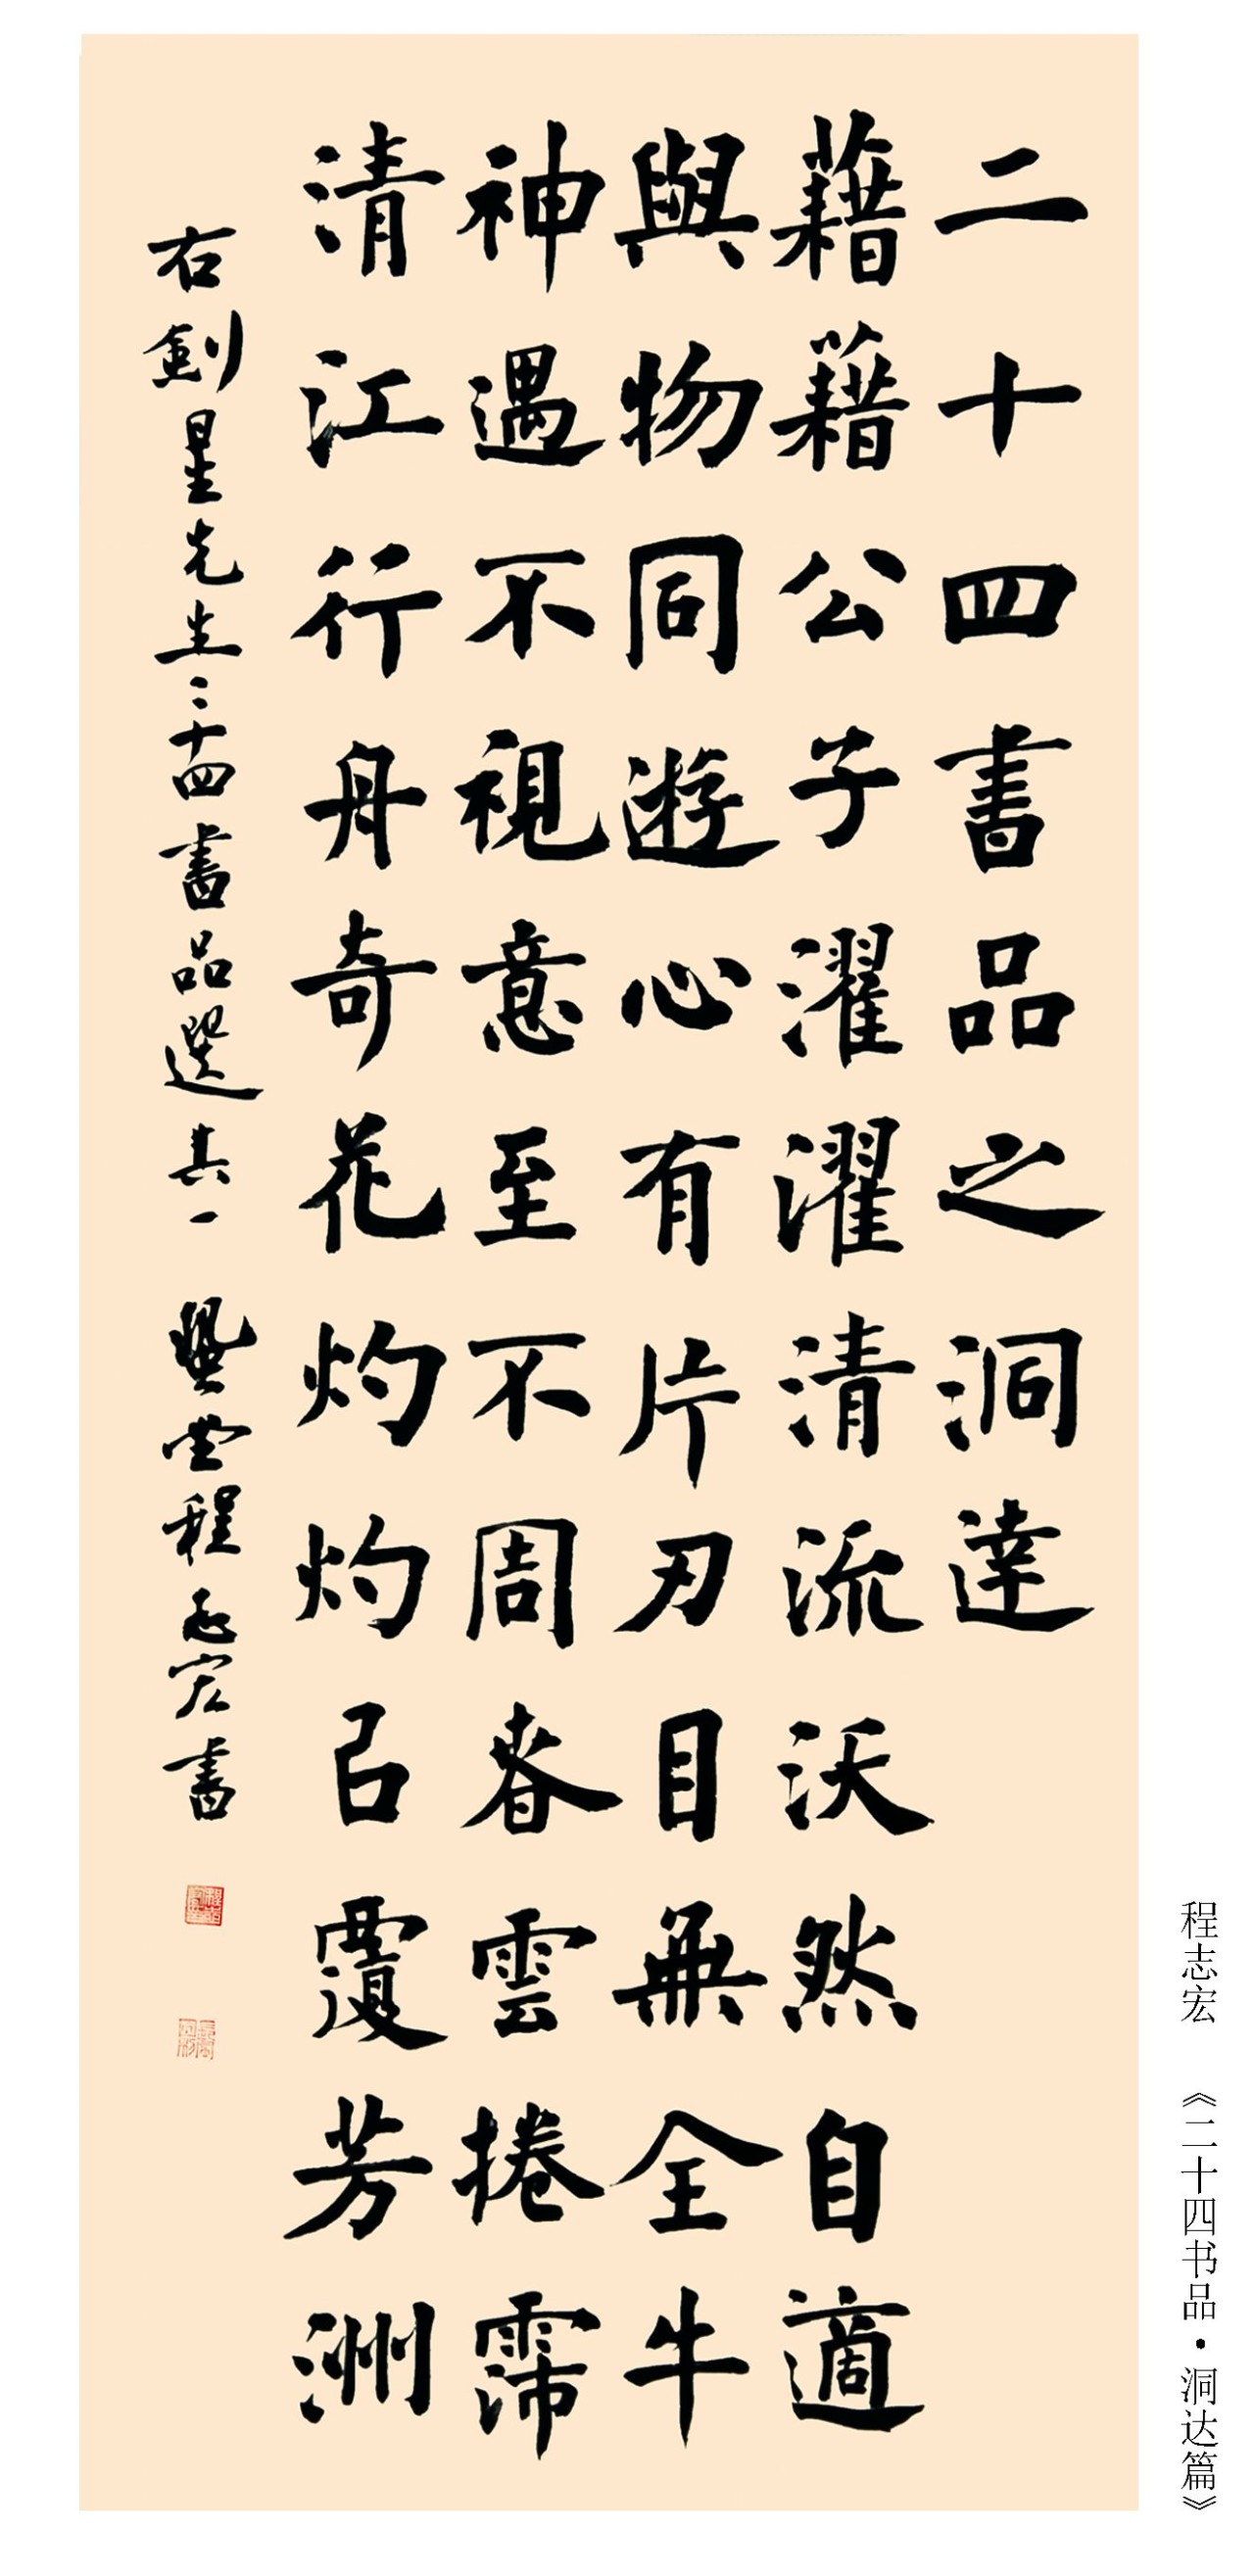 二十四書品之洞達
藉藉公子濯濯清流沃然自適
與物同遊心有片刃目無全牛
神遇不視意至不周春雲捲霈
清江行舟奇花灼灼㠯覆芳洲
右劍星先生二十四書品選其一 程志宏書
程志宏 《二十四书品·洞达篇》